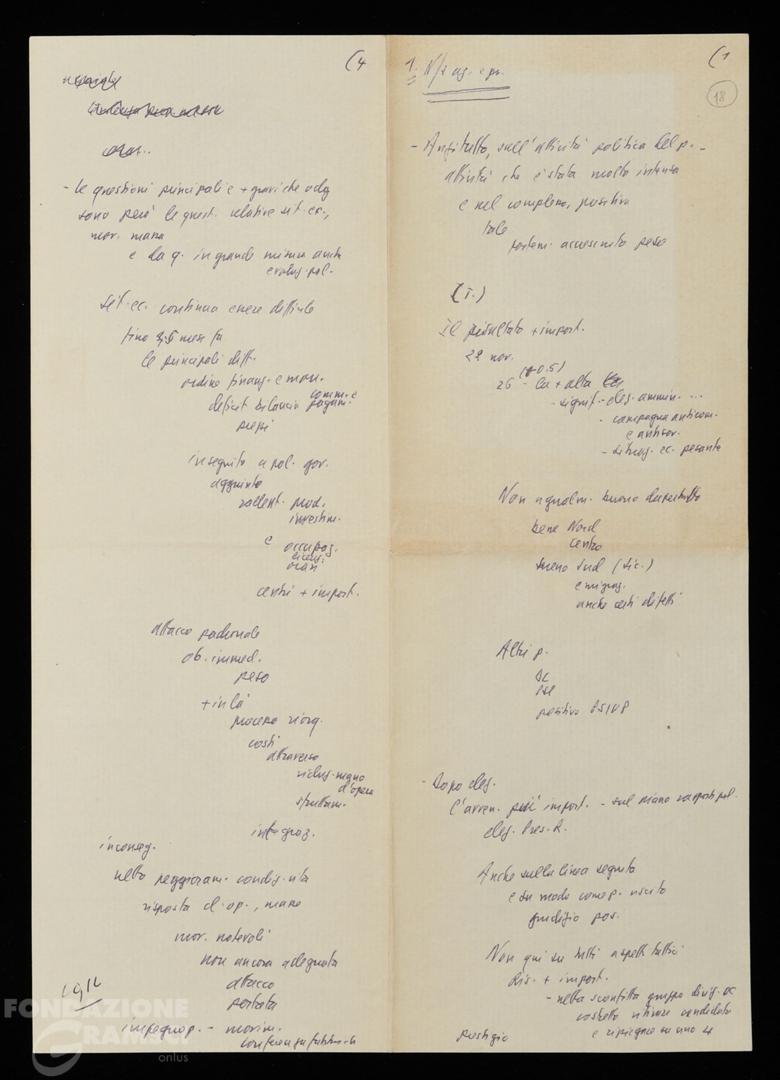 (4
- le questioni principali e + gravi che odg
sono però le quest. relative sit. ec.,
mov. massa
e da q. in grande misura anche
evoluz. pol.
sit. ec. continua essere difficile
fino 4,5 mesi fa
le principali diff.
ordine finanz. e mon.
deficit bilancia comm. e
pagam.
prezzi
in seguito a pol. gov.
aggiunto
rallent. prod.
investim.
e occupaz.
orari
centri + import.
attacco padronale
ob. immed.
peso
+ in là
processo riorg.
costi
attraverso
riduz. mano
d'opera
sfruttam.
integraz.
inconseg.
netto peggioram. condiz. vita
risposta cl. op., massa
mov. notevoli
non ancora adeguata
attacco
portata
impegno p. - movim.
(1
18
1. N/s az. e pr.
- Anzitutto, sull'attività politica del p. -
attività che è stata molto intensa
e nel complesso, positiva
tale
portem. accresciuto peso
(I.)
Il risultato + import.
22 nov.
26 - la + alta
(+0.5)
- signif. - elez. ammin. ...
- campagna anticom.
e antisov.
- situaz. ec. pesante
Non ugualm. buono dappertutto
bene Nord
centro
meno Sud (Sic.)
emigraz.
anche certi difetti
Altri p.
DC
PSI
positivo PSIUP
- Dopo elez.
l'avven. più import. - sul piano rapporti pol.
elez. Pres. R.
Anche sulla linea seguita
e su modo come p. uscito
giudizio pos.
Non qui su tutti aspetti tattici
Ris. + import.
- netta sconfitta gruppo dirig. DC
costretto ritirare candidato
e ripiegare su uno
prestigio
FONDAZIONE
GRAMSCI
onlus